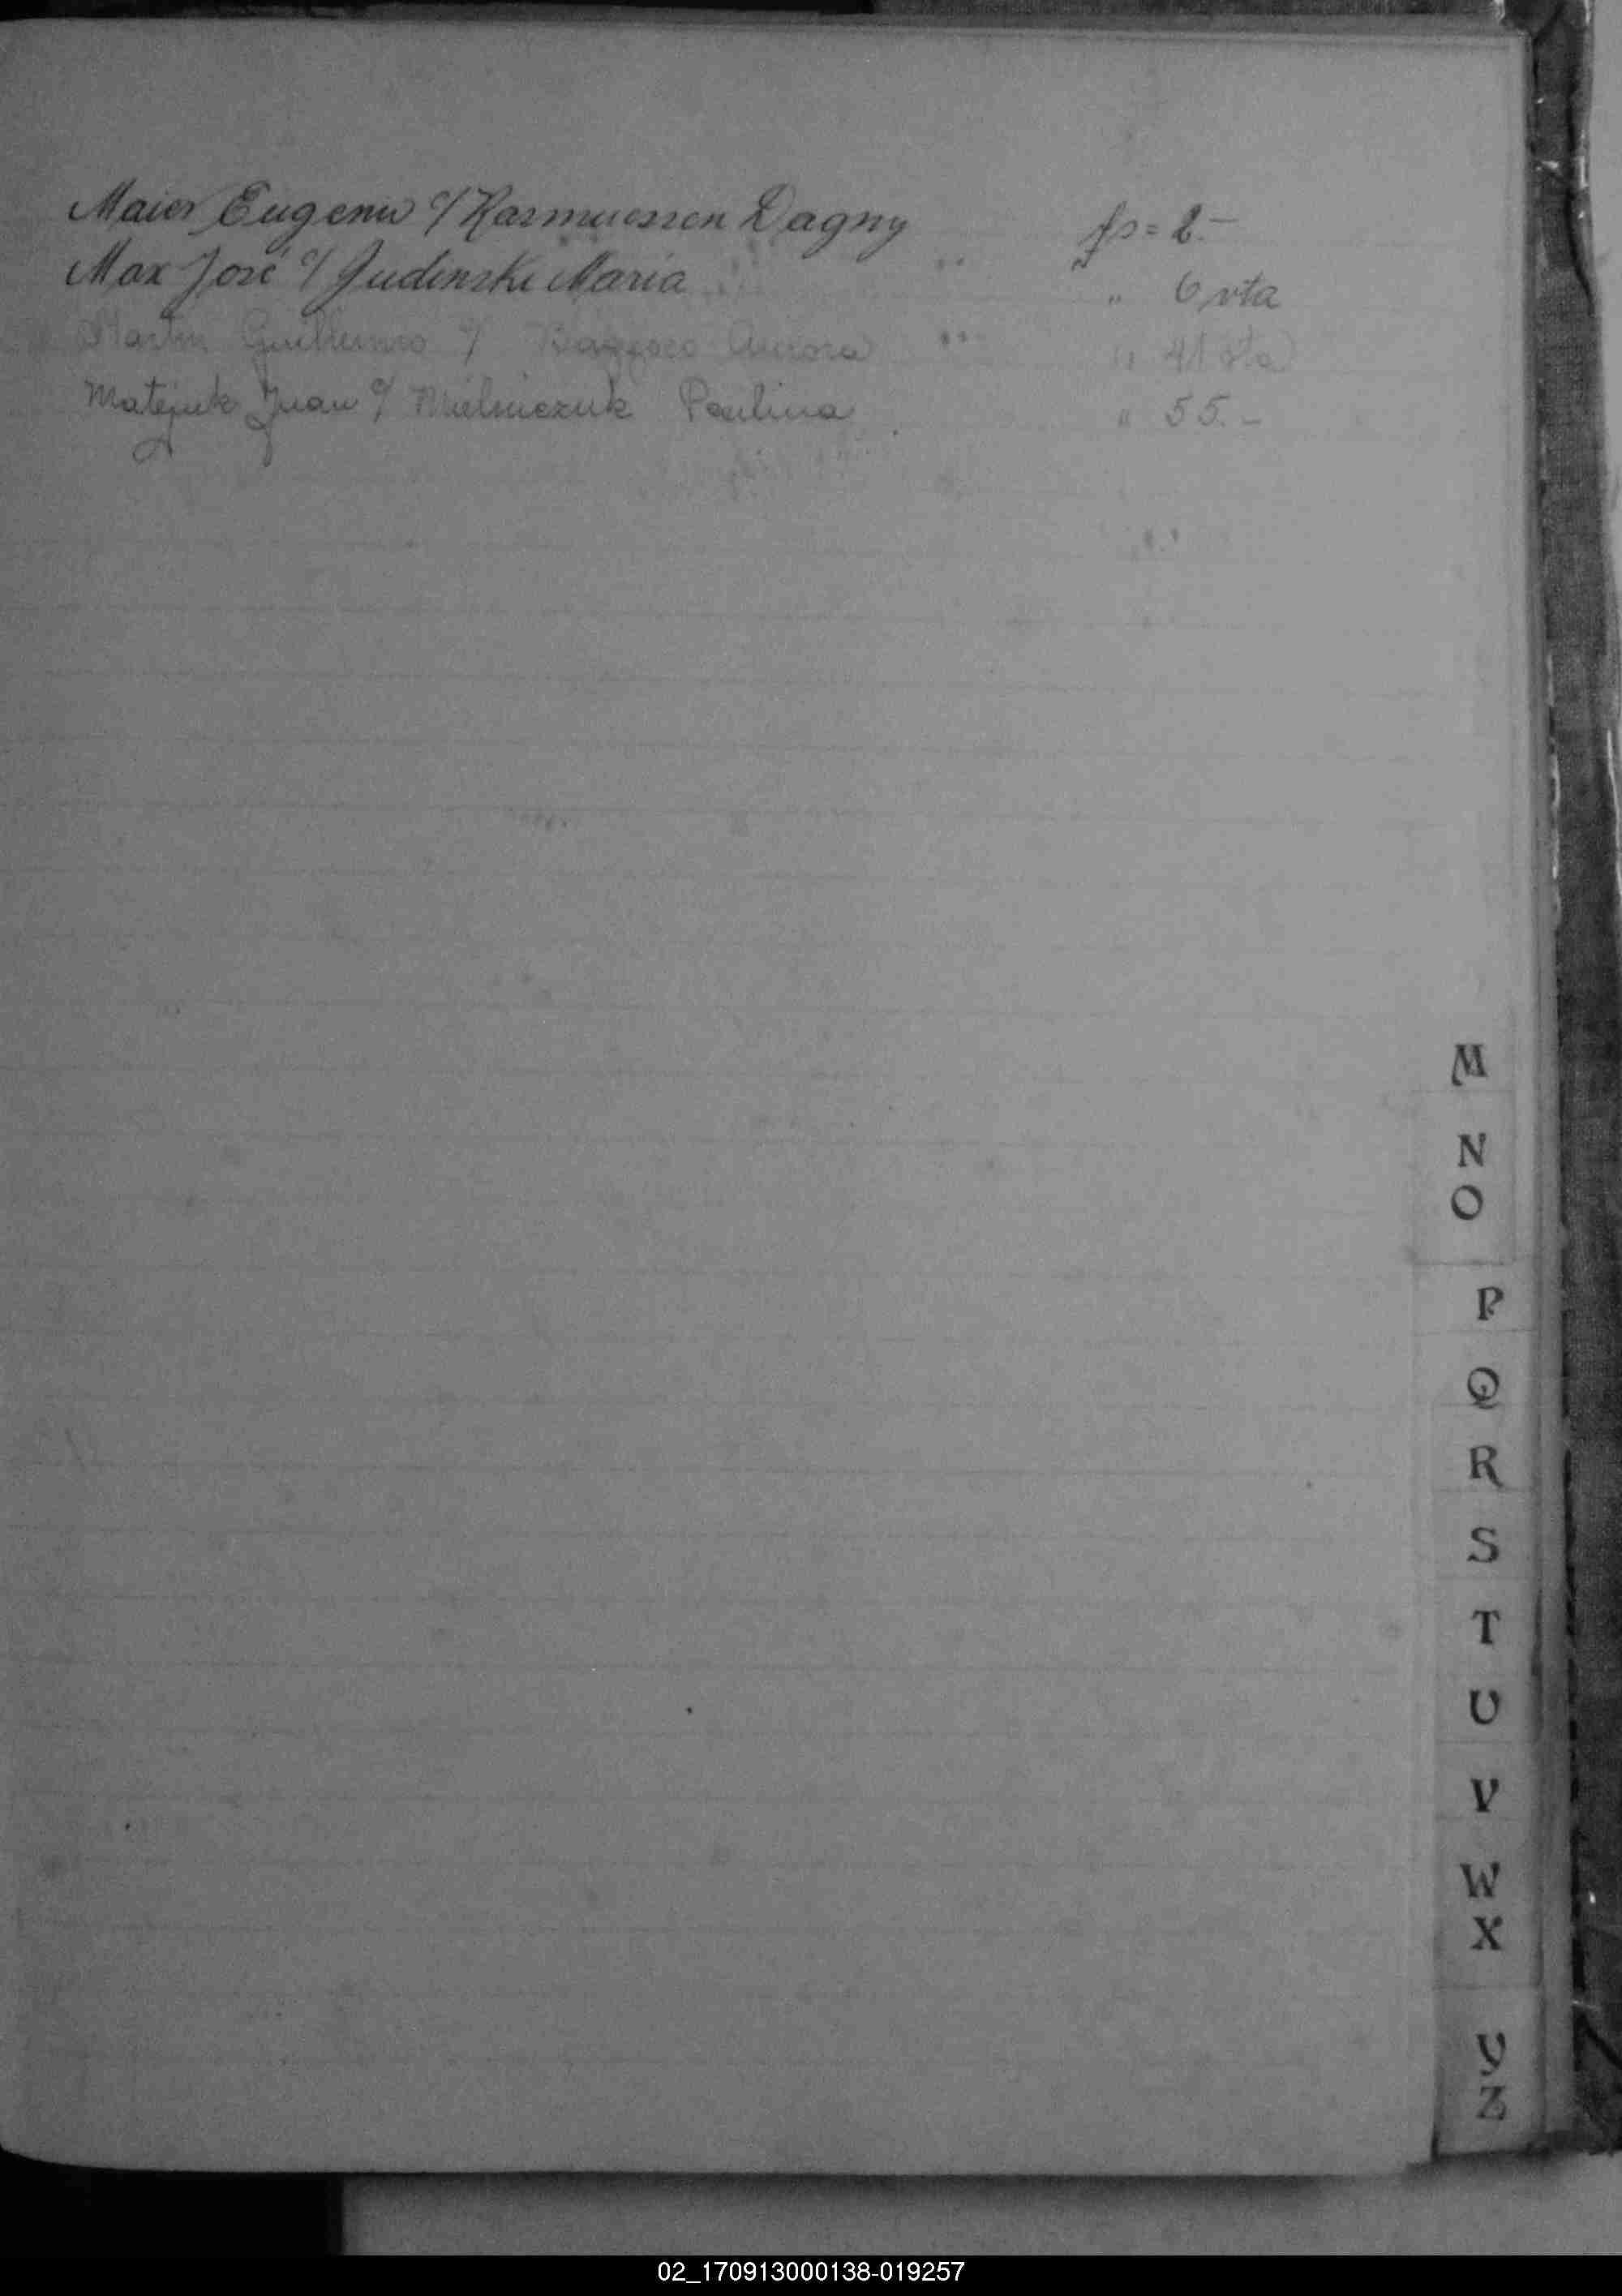 Maier Eugenio c/ Rasmuessen Dagny fs = 2.-
Max José c/ Judinski Maria " 6 vta
Martin Guillermo c/ Aurora " 41 vta
Matejuk Juan c/ Mielniczuk Paulina " 55.-
M
N
O
P
Q
R
S
T
U
V
W
X
Y
Z
02_170913000138-019257